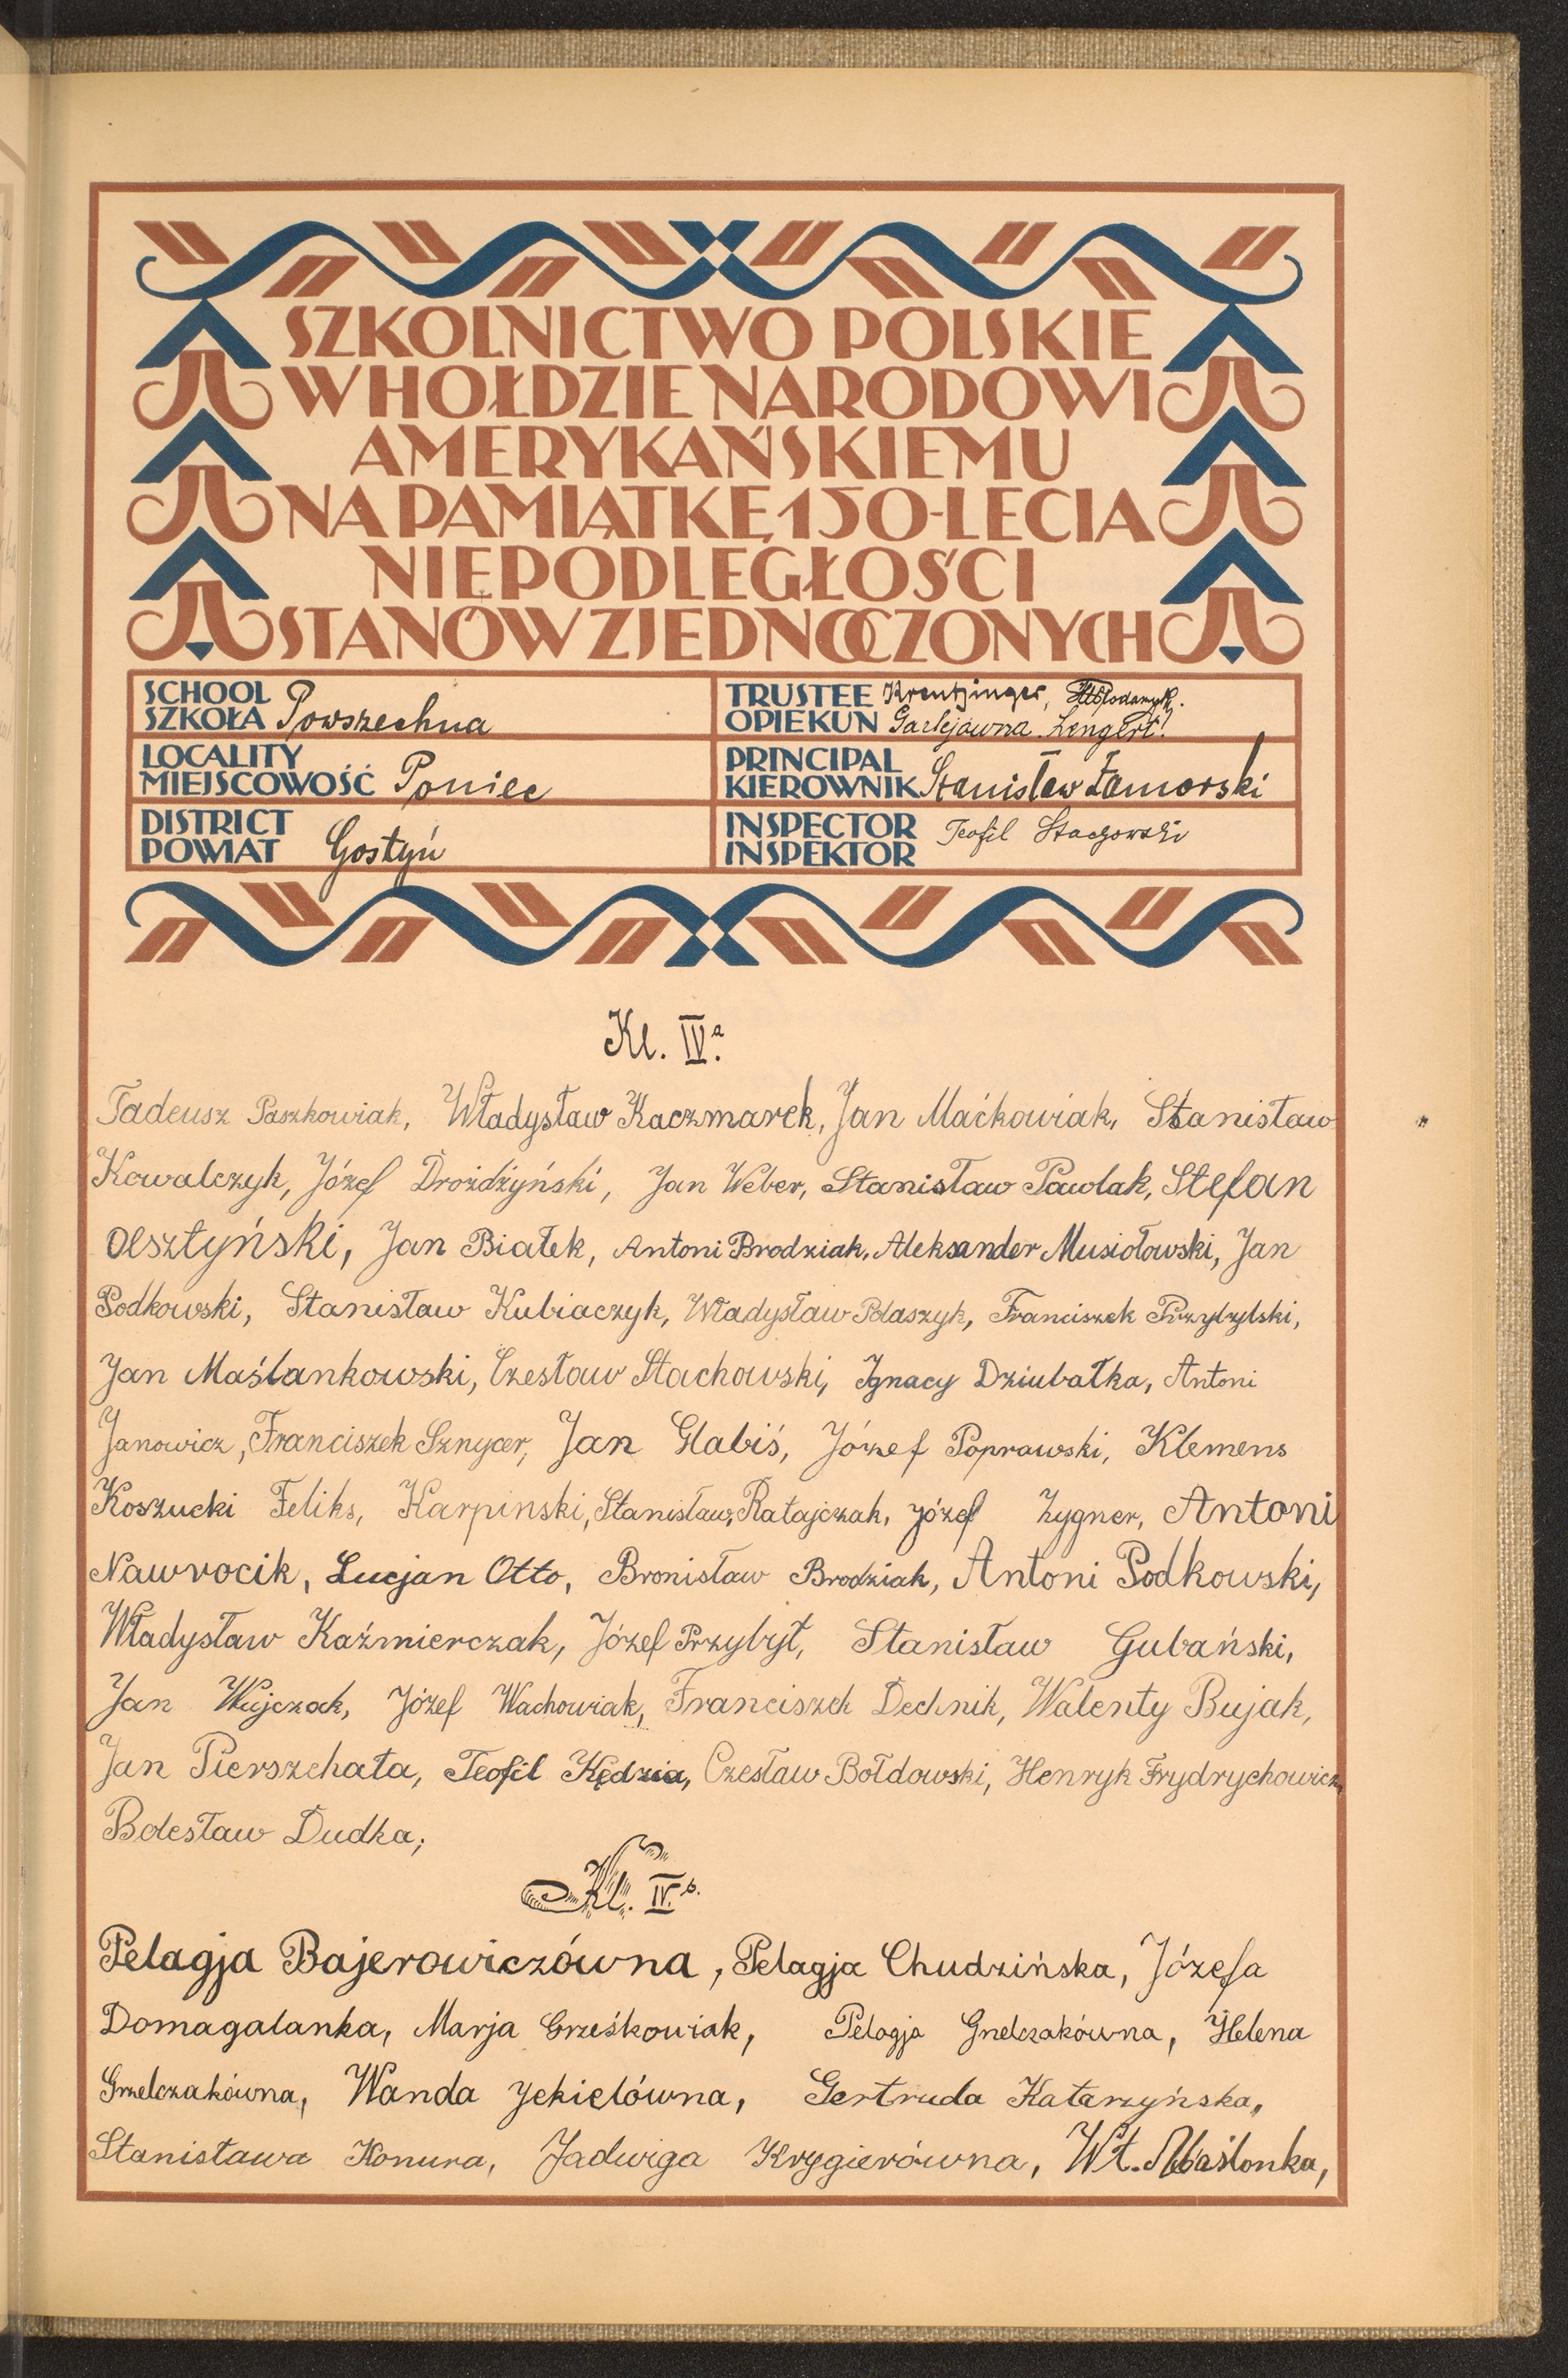 SZKOLNICTWO POLSKIE
W HOŁDZIE NARODOWI
AMERYKAŃSKIEMU
NA PAMIĄTKĘ 150-LECIA
NIEPODLEGŁOŚCI
STANÓW ZJEDNOCZONYCH
SCHOOL
SZKOŁA Powszechna
LOCALITY
MIEJSCOWOŚĆ Poniec
DISTRICT
POWIAT Gostyń
TRUSTEE Kreutzinger,
OPIEKUN
PRINCIPAL
KIEROWNIK Stanisław Zamorski
INSPECTOR
INSPEKTOR Teofil
Kl. IVa.
Tadeusz Paszkowiak, Władysław Kaczmarek, Jan Maćkowiak, Stanisław
Kowalczyk, Józef Drożdżyński, Jan Weber, Stanisław Pawlak, Stefan
Olsztyński, Jan Białek, Antoni Brodziak, Aleksander Musiołowski, Jan
Podkowski, Stanisław Kubiaczyk, Władysław Polaszyk, Franciszek Przybylski,
Jan Maślankowski, Czesław Stachowski, Ignacy Dziubałka, Antoni
Janowicz, Franciszek Sznycer, Jan Glabiś, Józef Poprawski, Klemens
Koszucki Feliks, Karpinski, Stanisław, Ratajczak, Józef Zygner, Antoni
Nawrocik, Lucjan Otto, Bronisław Brodziak, Antoni Podkowski,
Władysław Kaźmierczak, Józef Przybył, Stanisław Gubański,
Jan Wujczak, Józef Wachowiak, Franciszek Dechnik, Walenty Bujak,
Jan Pierszchała, Teofil Kędzia, Czesław Bołdowski, Henryk Frydrychowicz,
Bolesław Dudka;
Kl. IV.b.
Pelagja Bajerowiczówna, Pelagja Chudzińska, Józefa
Domagalanka, Marja Grześkowiak, Pelagja Gnelczakówna, Helena
Grzelczakówna, Wanda Jekielówna, Gertruda Katarzyńska,
Stanisława Konura, Jadwiga Krygierówna, Wł. Maślonka,